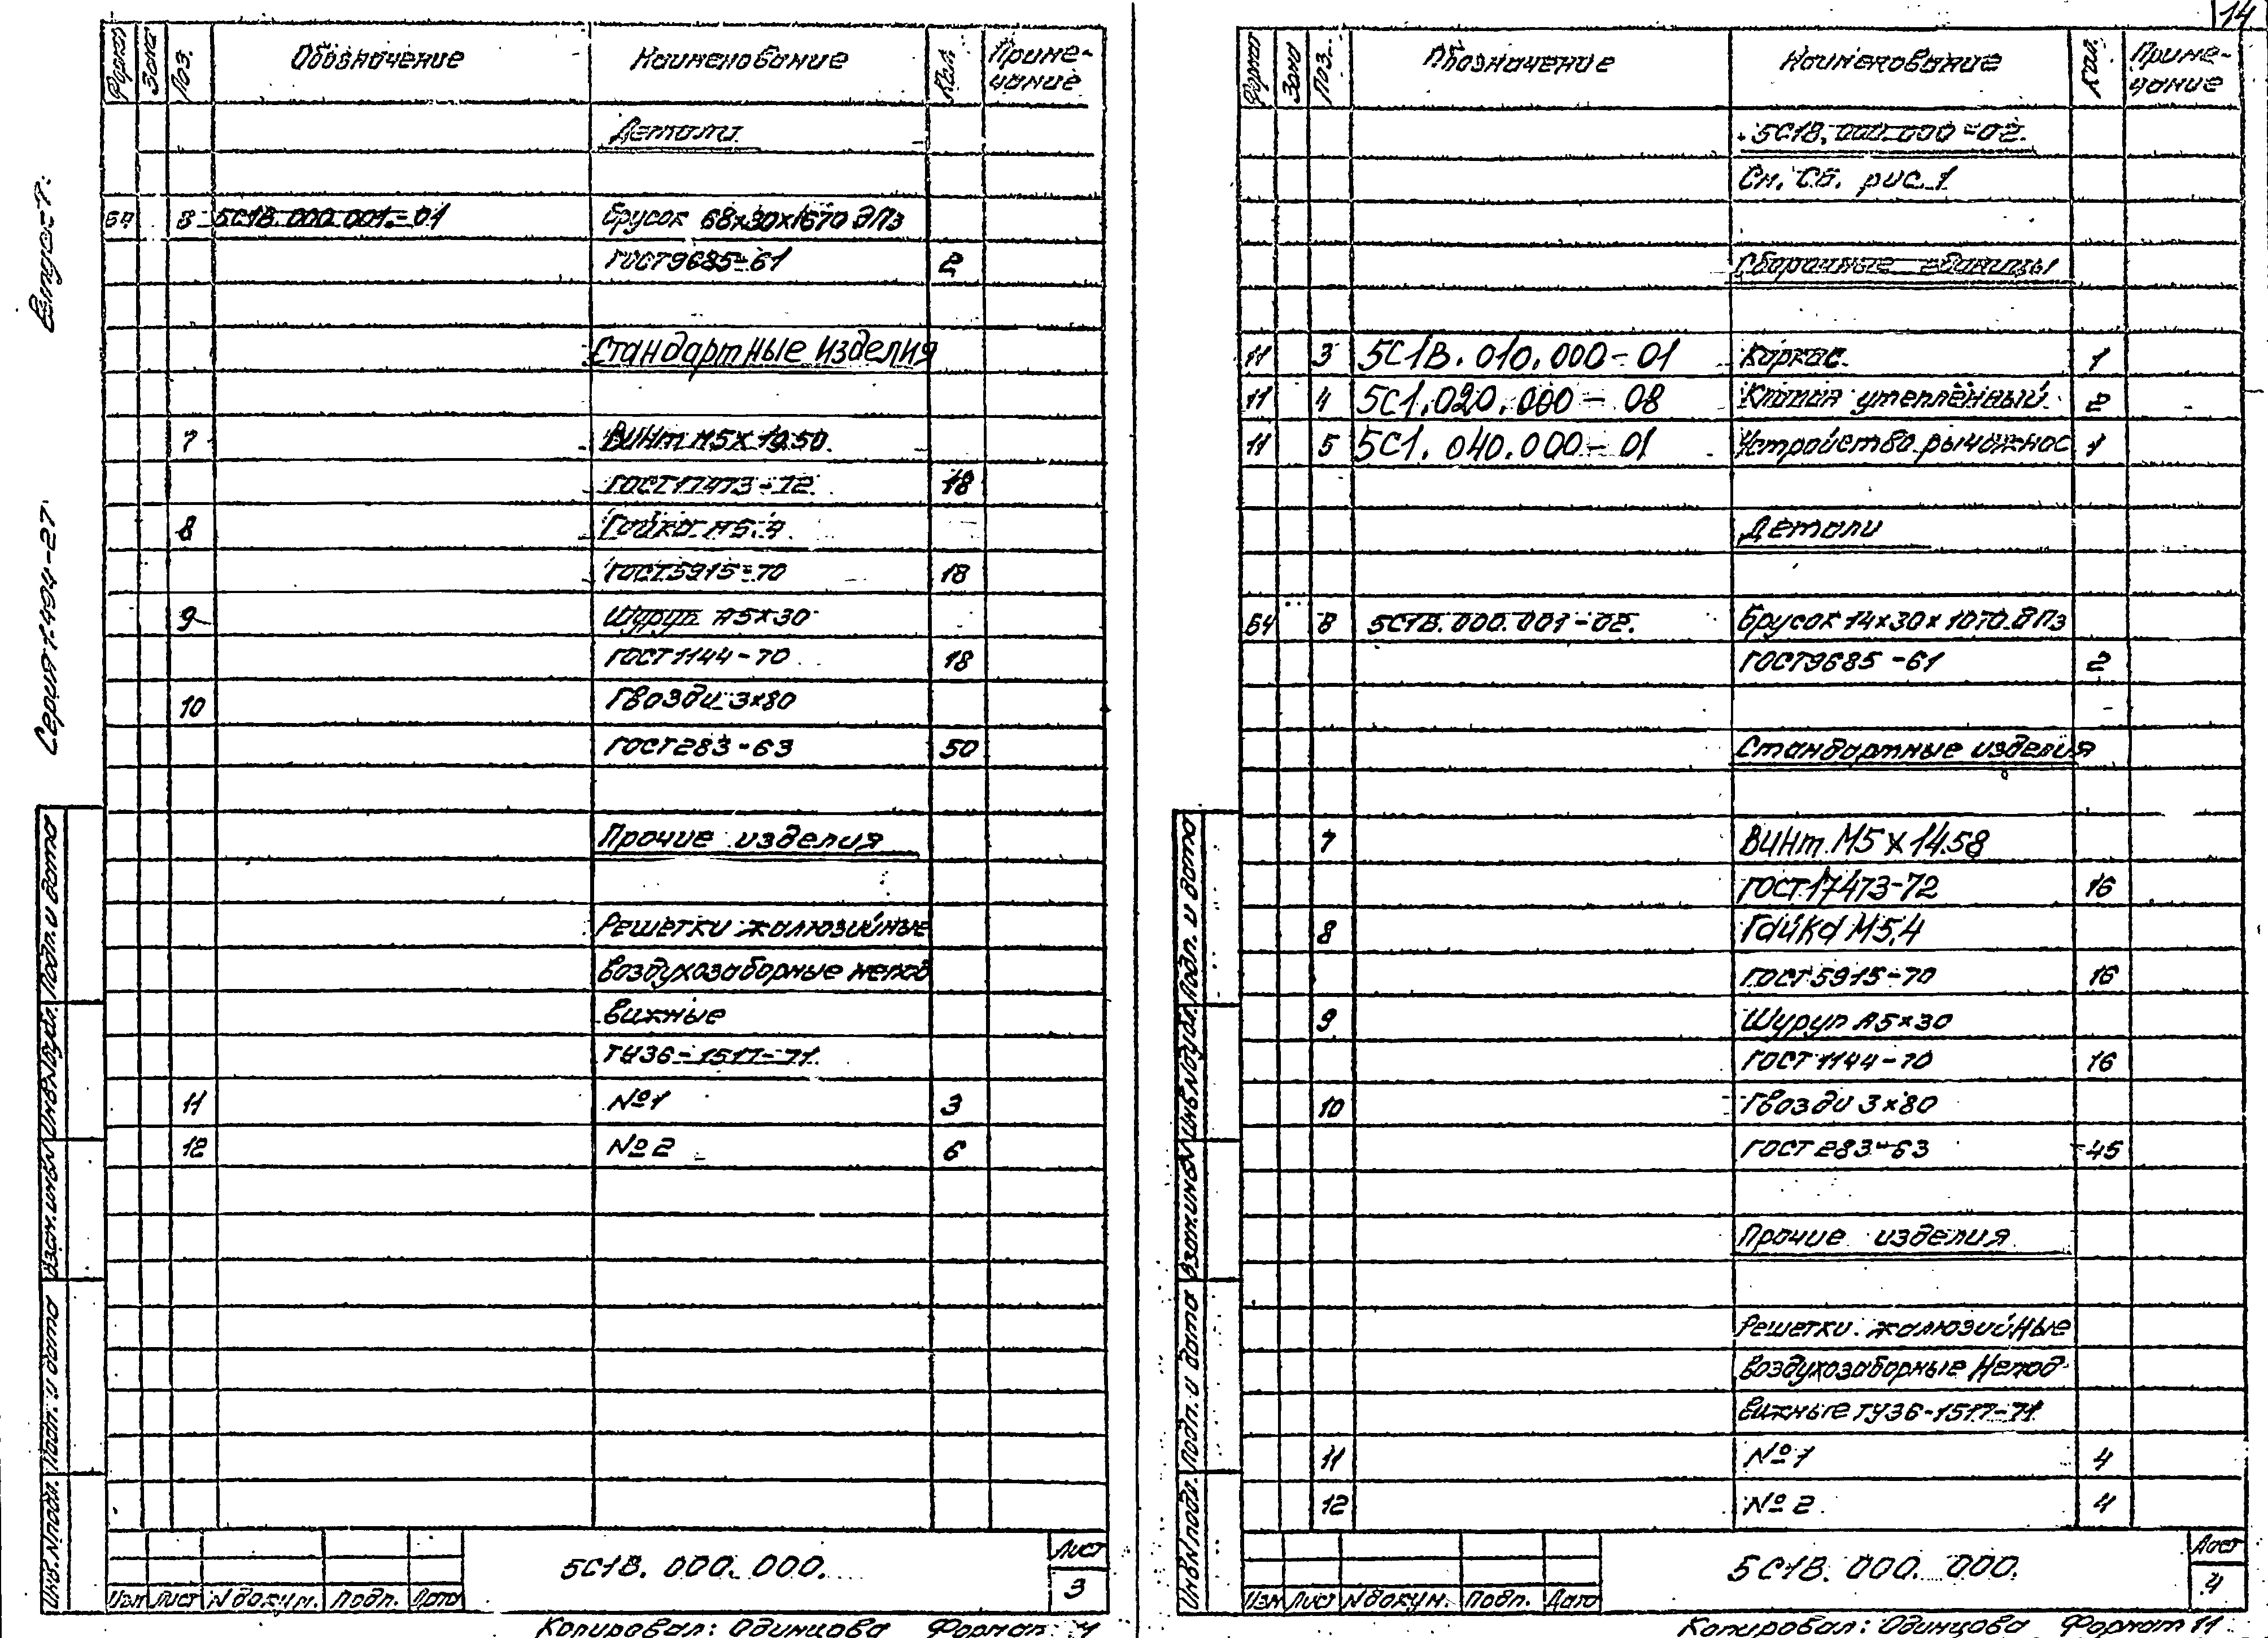 14
Серия 1.494-27
Формат Зона Поз. Обозначение Наименование Кол. Приме-
чание
Детали
БЧ 8 5С1В.000.001-01 Брусок 68х30х1670 ДПз
ГОСТ9685-61 2
Стандартные изделия
7 Винт М5х
ГОСТ17473-72 18
8 Гайка М5.4
ГОСТ5915-70 18
9 Шуруп А5х30
ГОСТ1144-70 18
10 Гвозди 3х80
ГОСТ283-63 50
Прочие изделия
Решетки жалюзийные
воздухозаборные непод
вижные
ТУ36-1517-71
11 №1 3
12 №2 6
Инв.№подл. Подп. и дата Взам.инв.№ Инв.№дубл. Подп. и дата
Изм Лист №докум. Подп. Дата
5С1В. 000. 000.
Лист
3
Копировал: Одинцова Формат
Формат Зона Поз. Обозначение Наименование Кол. Приме-
чание
5С1В.000.000-02.
См. СБ. рис.1
Сборочные единицы
11 3 5С1В.010.000-01 Каркас 1
11 4 5С1.020.000-08 Клапан утеплённый 2
11 5 5С1.040.000-01 Устройство рычажное 1
Детали
БЧ 8 5С1В.000.001-02. Брусок 14х30х1070 ДПз
ГОСТ9685-61 2
Стандартные изделия
7 Винт М5х14.58
ГОСТ17473-72 16
8 Гайка М5.4
ГОСТ5915-70 16
9 Шуруп А5х30
ГОСТ 1144-70 16
10 Гвозди 3х80
ГОСТ 283-63 45
Прочие изделия
Решетки жалюзийные
воздухозаборные Непод
вижные ТУ36-1517-71
11 №1 4
12 №2 4
Инв.№подл. Подп. и дата Взам.инв.№ Инв.№дубл. Подп. и дата
Изм Лист №докум. Подп. Дата
5С1В. 000. 000.
Лист
4
Копировал: Одинцова Формат 11